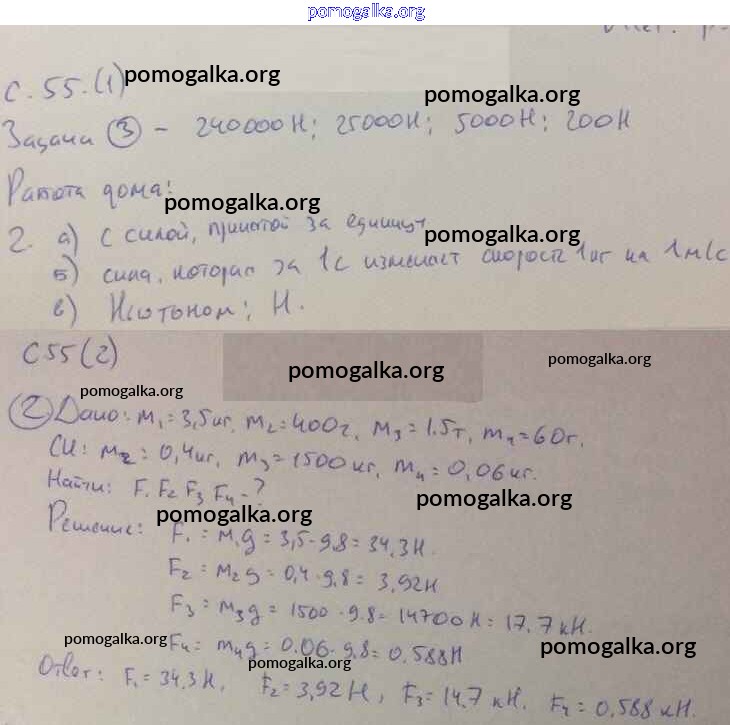 pomogalka.org
с. 55. (1) pomogalka.org
pomogalka.org
Задача ③ - 240000Н; 25000Н; 5000Н; 200Н
Работа дома:
pomogalka.org
2. а) с силой, принятой за единицу
pomogalka.org
б) сила, которая за 1с изменяет скорость 1кг на 1м/с
в) Ньютоном; Н.
С 55 (2)
pomogalka.org
pomogalka.org
pomogalka.org
② Дано: m₁=3,5кг, m₂=400г, m₃=1.5т, m₄=60г.
СИ: m₂=0,4кг, m₃=1500кг, m₄=0,06кг.
Найти: F₁ F₂ F₃ F₄-?
pomogalka.org
pomogalka.org
Решение: F₁=m₁g=3,5·9,8=34,3Н.
F₂=m₂g=0,4·9,8=3,92Н
F₃=m₃g=1500·9.8=14700Н=17,7кН.
pomogalka.org F₄=m₄g=0.06·9,8=0.588Н
pomogalka.org
pomogalka.org
Ответ: F₁=34.3Н, F₂=3,92Н, F₃=14,7кН, F₄=0,588кН.